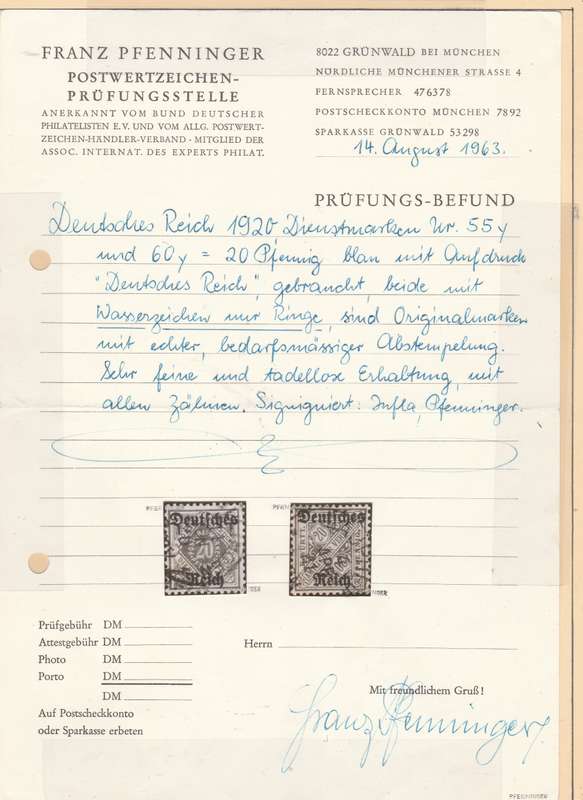 FRANZ PFENNINGER
POSTWERTZEICHEN-
PRÜFUNGSSTELLE
ANERKANNT VOM BUND DEUTSCHER
PHILATELISTEN E.V. UND VOM ALLG. POSTWERT-
ZEICHEN-HÄNDLER-VERBAND · MITGLIED DER
ASSOC. INTERNAT. DES EXPERTS PHILAT.
8022 GRÜNWALD BEI MÜNCHEN
NÖRDLICHE MÜNCHENER STRASSE 4
FERNSPRECHER 476378
POSTSCHECKKONTO MÜNCHEN 7892
SPARKASSE GRÜNWALD 53298
14. August 1963.
PRÜFUNGS-BEFUND
Deutsches Reich 1920, Dienstmarken Nr. 55y
und 60y = 20 Pfennig blau mit Aufdruck
"Deutsches Reich", gebraucht, beide mit
Wasserzeichen nur Ringe, sind Originalmarken
mit echter, bedarfsmässiger Abstempelung.
Sehr feine und tadellose Erhaltung, mit
allen Zähnen. Signigniert: Infla, Pfenninger.
Deutsches
20
Reich
Deutsches
20
Reich
Prüfgebühr DM
Attestgebühr DM
Photo DM
Porto DM
DM
Auf Postscheckkonto
oder Sparkasse erbeten
Herrn
Mit freundlichem Gruß!
Franz Pfenninger
PFENNINGER